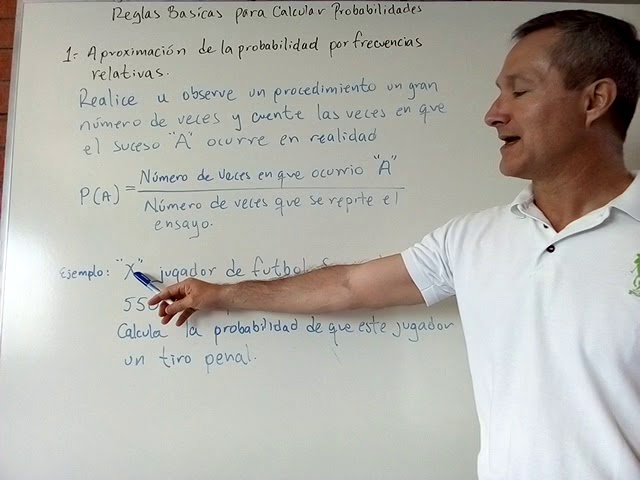 Reglas Basicas para Calcular Probabilidades
1.- Aproximación de la probabilidad por frecuencias
relativas.
Realice u observe un procedimiento un gran
número de veces y cuente las veces en que
el suceso "A" ocurre en realidad
P(A) = Número de veces en que ocurrio "A"
Número de veces que se repite el
ensayo.
Ejemplo: "X" jugador de futbol
55
Calcula la probabilidad de que este jugador
un tiro penal.